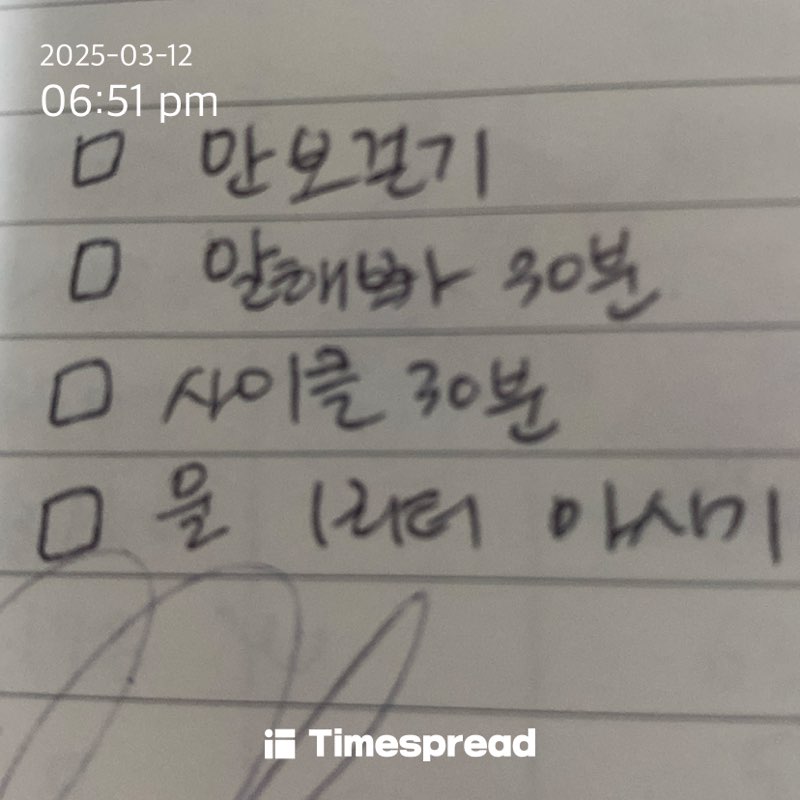 2025-03-12
06:51 pm
만보걷기
30분
사이클 30분
물 1리터 마시기
Timespread